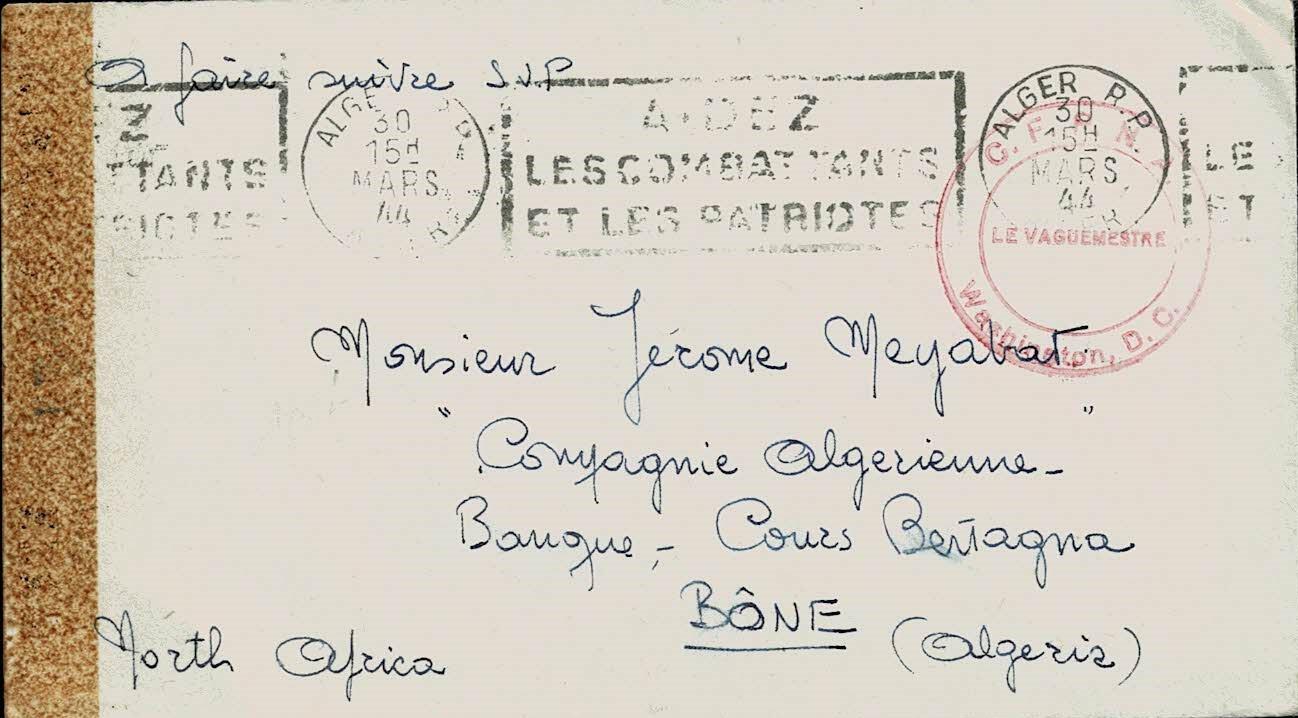 A faire suivre S.V.P
TTANTS
ALGER R.P.
30
15H
MARS
44
AIDEZ
LES COMBATTANTS
ET LES PATRIOTES
ALGER R.P.
30
15H
MARS
44
LE
ET
C. F. L. N.
LE VAGUEMESTRE
Washington, D. C.
Monsieur Jérome Meyabat.
"Compagnie Algerienne"-
Banque,- Cours Bertagna
BÔNE
North Africa (Algeria)